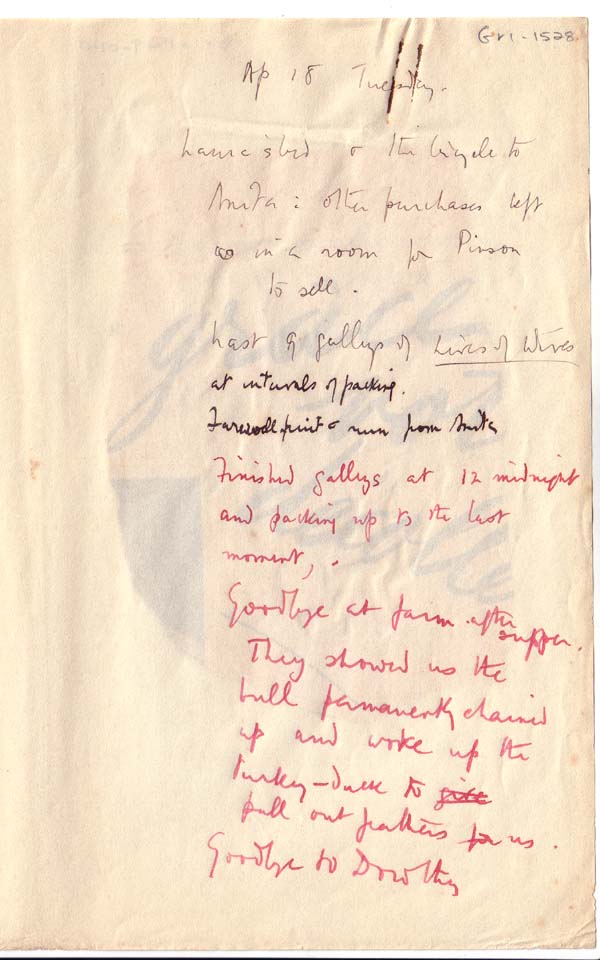 Gr1-1528
Ap 18 Tuesday.
Laura's bed & the bicycle to
Anita: other purchases left
in a room for Pinson
to sell.
Last of galleys of Lives of Wives
at intervals of packing.
Farewell fruit & rum from Anita
Finished galleys at 12 midnight
and packing up to the last
moment,.
Goodbye at farm after
supper.
They showed us the
bull permanently chained
up and woke up the
turkey-duck to give
pull out feathers for us.
Goodbye to Dorothy